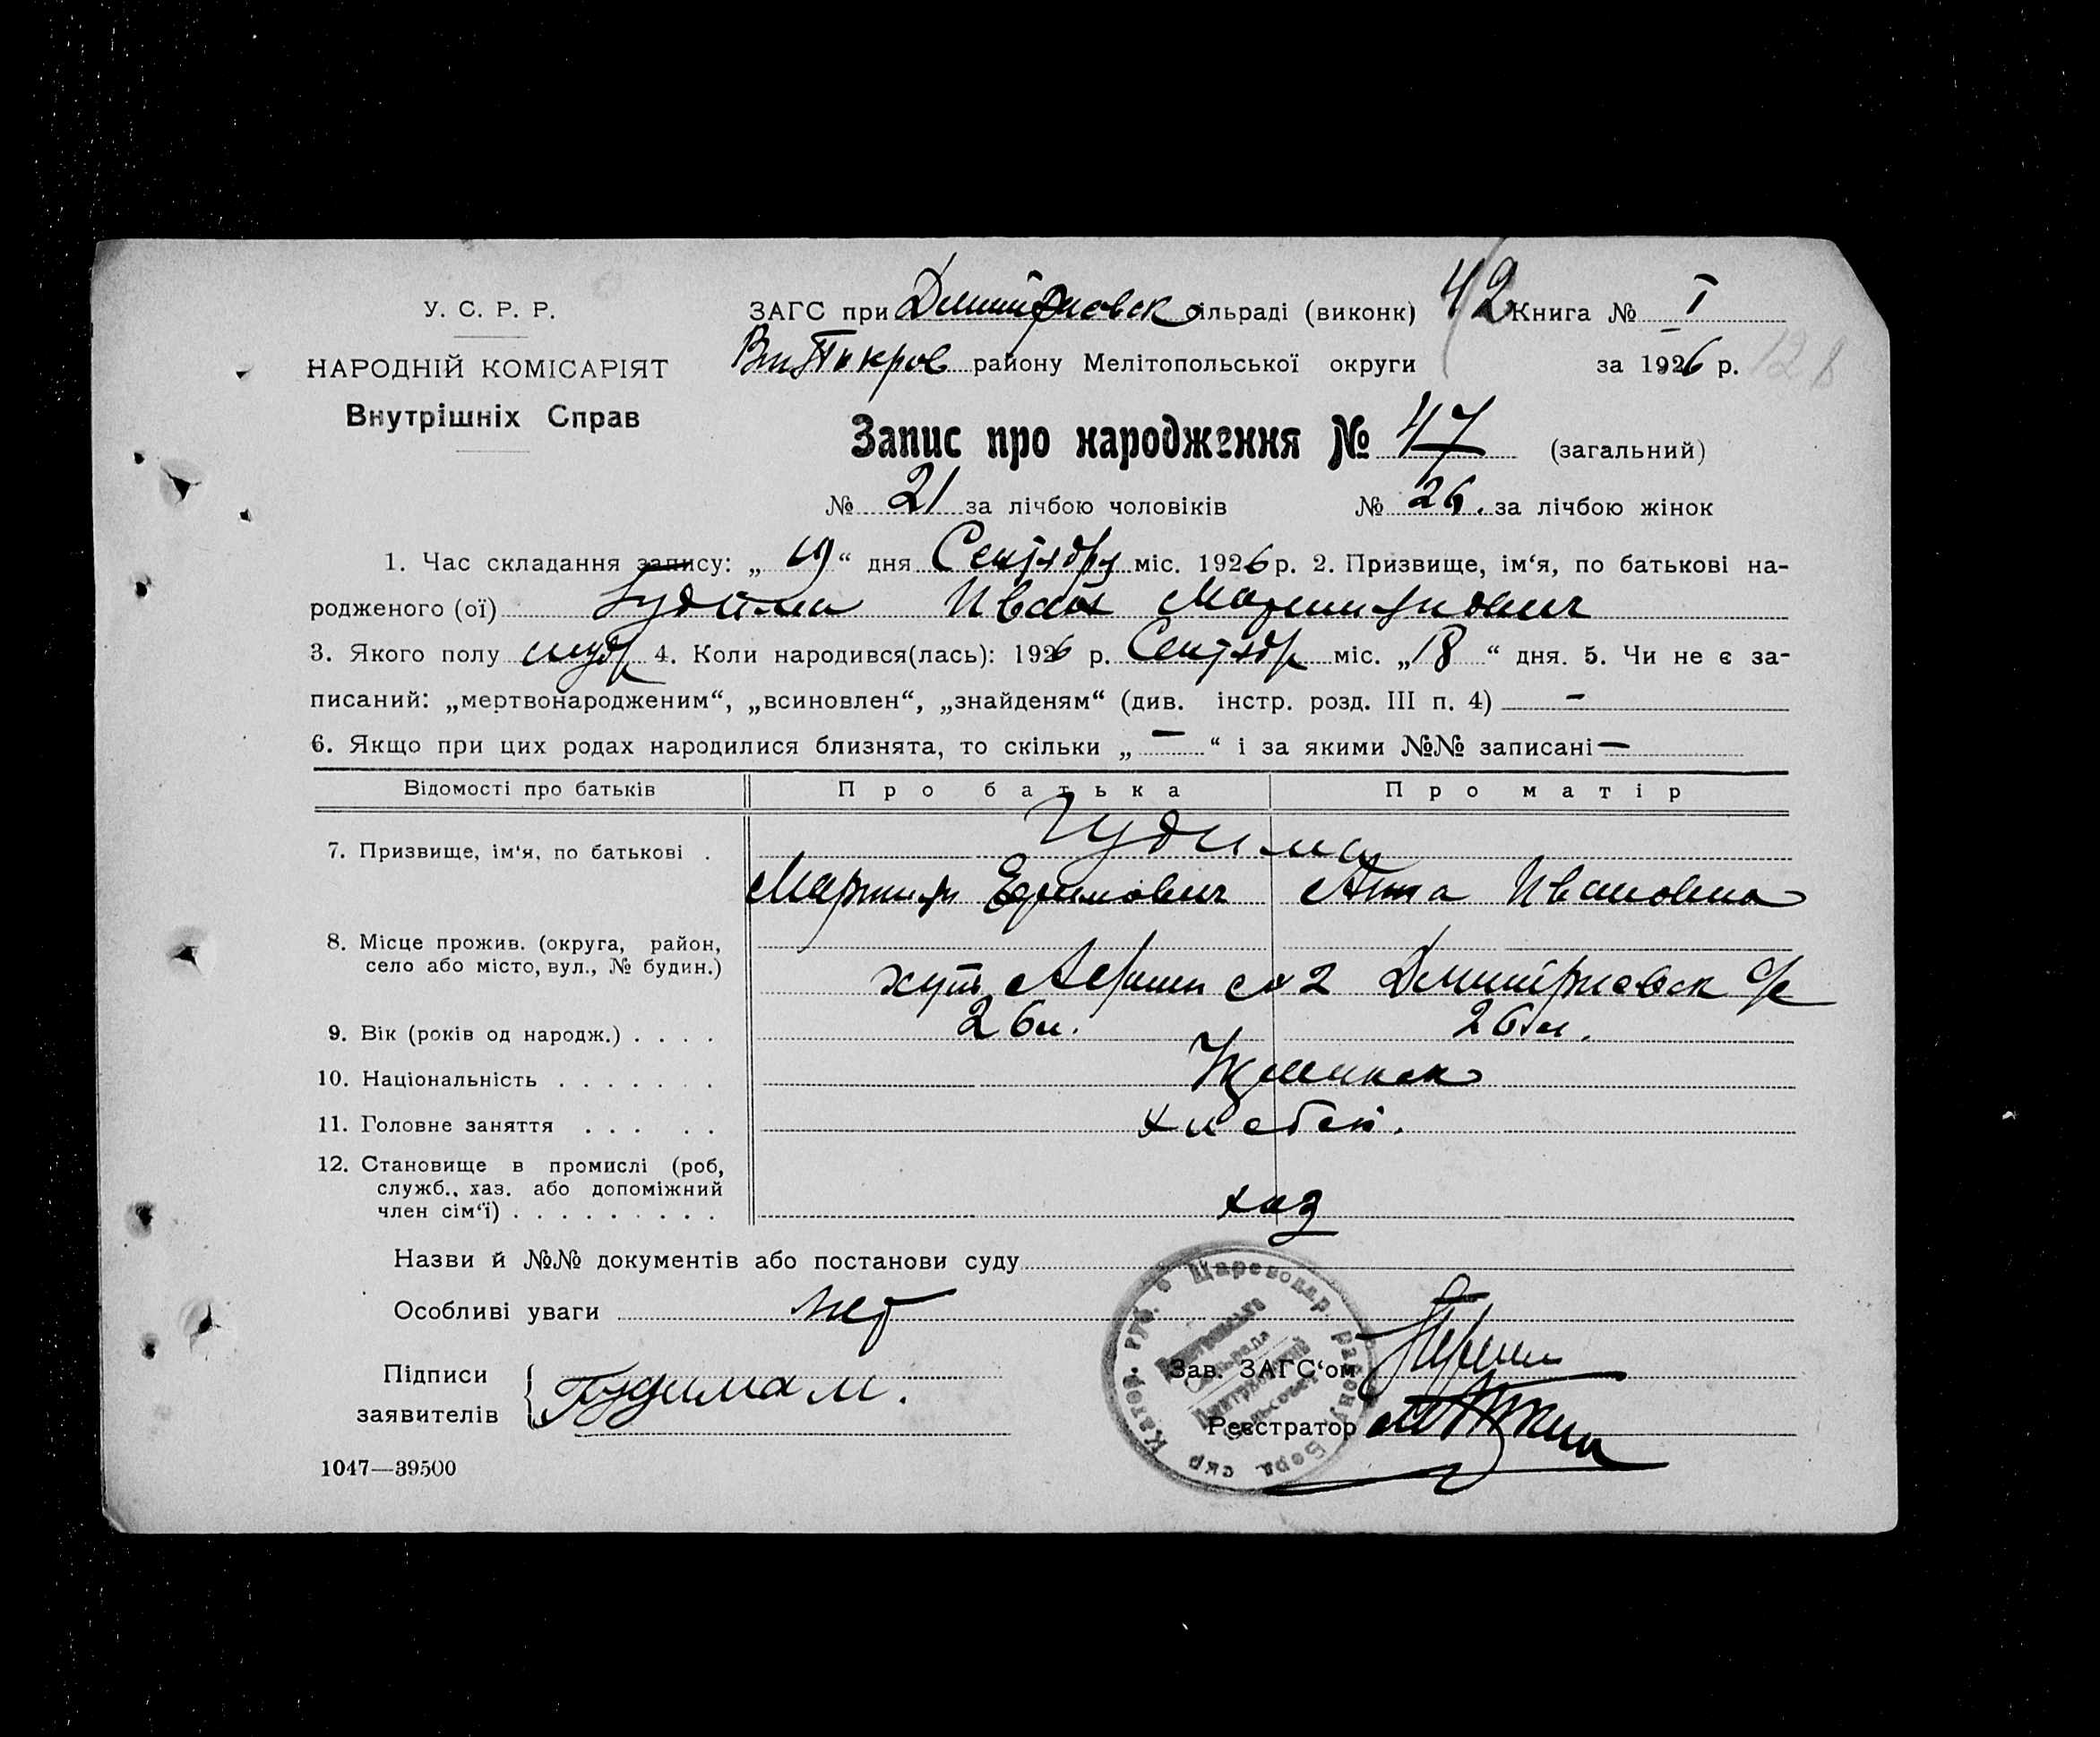 У. С. Р. Р.
НАРОДНІЙ КОМІСАРІЯТ
Внутрішніх Справ
ЗАГС при Дмитриевск сільраді (виконк) 42 Книга № I
району Мелітопольської округи за 1926 р.
Запис про народження № 47 (загальний)
№ 21 за лічбою чоловіків № 26. за лічбою жінок
1. Час складання запису: „ 19 “ дня Сентября міс. 1926 р. 2. Призвище, ім‘я, по батькові на-
родженого (ої) Гудима Иван Мартинович
3. Якого полу 4. Коли народився(лась): 1926 р. Сентябр міс. „ 18 “ дня. 5. Чи не є за-
писаний: „мертвонародженим“, „всиновлен“, „знайденям“ (див. інстр. розд. III п. 4) –
6. Якщо при цих родах народилися близнята, то скільки „ — “ і за якими №№ записані —
Відомості про батьків Про батька Про матір
7. Призвище, ім‘я, по батькові . Гудима
Мартин Ефимович Анна Ивановна
8. Місце прожив. (округа, район,
село або місто, вул., № будин.)
хут № 2 Дмитриевск с/с
9. Вік (років од народж.) . . . . 26 л. 26 л.
10. Національність . . . . . . .
11. Головне заняття . . . . . хлебоп.
12. Становище в промислі (роб,
служб., хаз. або допоміжний
член сім‘ї) . . . . . . . . . хаз
Назви й №№ документів або постанови суду
Особливі уваги нет
Підписи
заявителів { Гудима М.
Зав. ЗАГС‘ом
Реєстратор
1047—39500